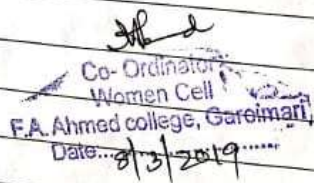 Co-Ordinator
Women Cell
F.A. Ahmed college, Garoimari,
Date...8/3/2019...........